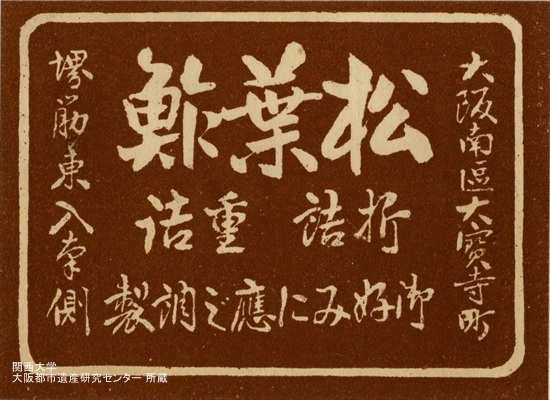 大阪南區大寶寺町
松葉鮓
折詰 重詰
御好みに應じ調製
堺筋東入南側
関西大学
大阪都市遺産研究センター 所蔵